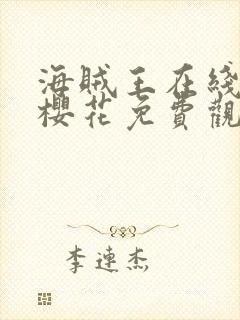 海賊王在綫
櫻花免費觀
李連杰